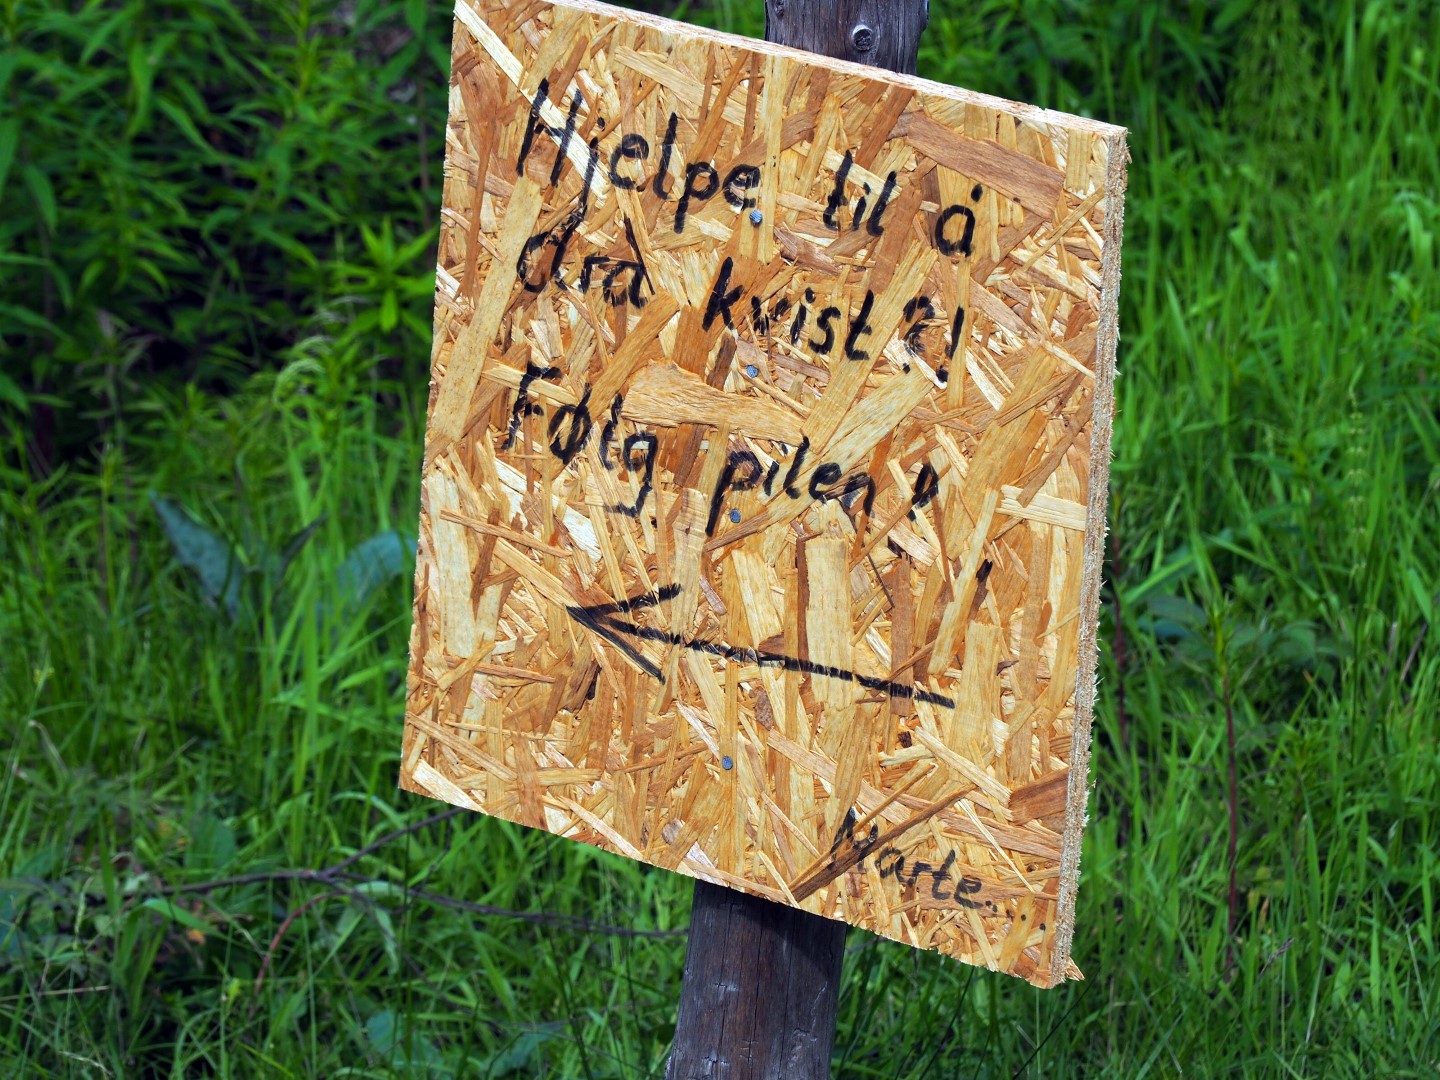 Hjelpe til å
dra kvist?!
Følg pilen!
Marte...